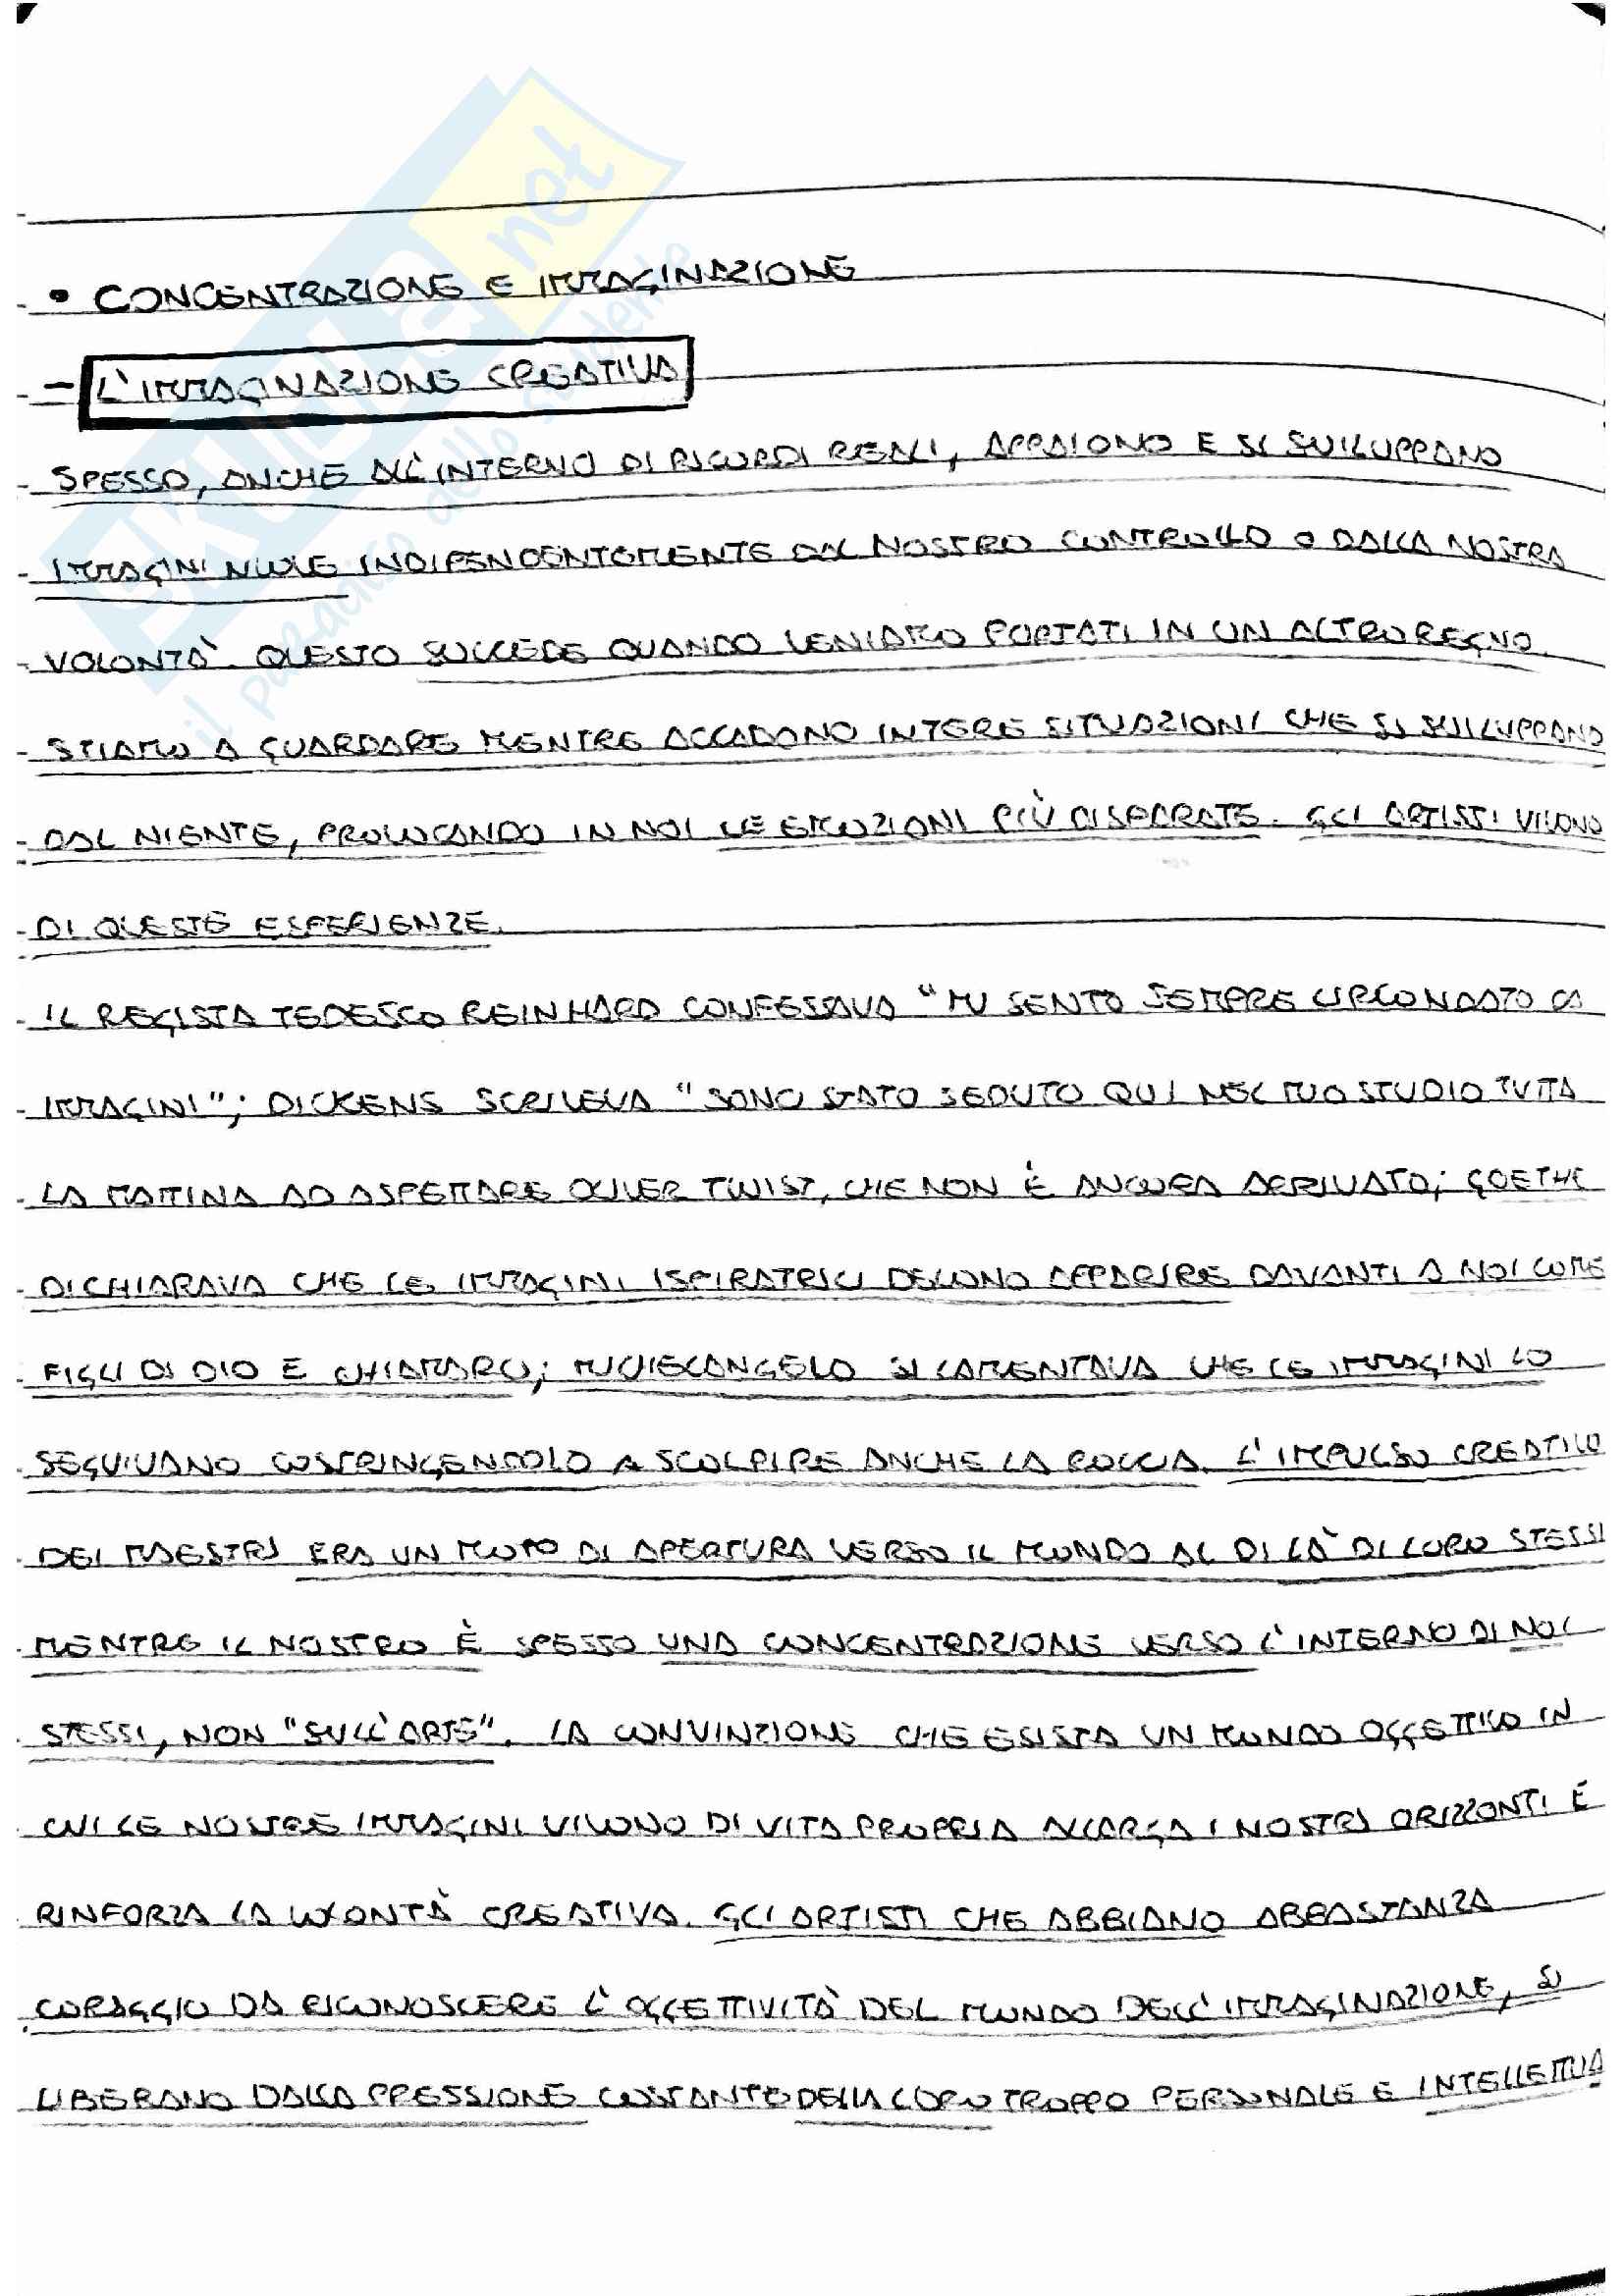 SKUOLA.net
il paradiso dello studente
• CONCENTRAZIONE E IMMAGINAZIONE
- L'IMMAGINAZIONE CREATIVA
SPESSO, ANCHE ALL'INTERNO DI RICORDI REALI, APPAIONO E SI SVILUPPANO
IMMAGINI NUOVE INDIPENDENTEMENTE DAL NOSTRO CONTROLLO O DALLA NOSTRA
VOLONTÀ. QUESTO SUCCEDE QUANDO VENIAMO PORTATI IN UN ALTRO REGNO.
STIAMO A GUARDARE MENTRE ACCADONO INTERE SITUAZIONI CHE SI SVILUPPANO
DAL NIENTE, PROVOCANDO IN NOI LE EMOZIONI PIÙ DISPARATE. GLI ARTISTI VIVONO
DI QUESTE ESPERIENZE.
IL REGISTA TEDESCO REINHARD CONFESSAVA "MI SENTO SEMPRE CIRCONDATO DA
IMMAGINI"; DICKENS SCRIVEVA "SONO STATO SEDUTO QUI NEL MIO STUDIO TUTTA
LA MATTINA AD ASPETTARE OLIVER TWIST, CHE NON È ANCORA ARRIVATO; GOETHE
DICHIARAVA CHE LE IMMAGINI ISPIRATRICI DEVONO APPARIRE DAVANTI A NOI COME
FIGLI DI DIO E CHIAMARCI; MICHELANGELO SI LAMENTAVA CHE LE IMMAGINI LO
SEGUIVANO COSTRINGENDOLO A SCOLPIRE ANCHE LA ROCCIA. L'IMPULSO CREATIVO
DEI MAESTRI ERA UN MOTO DI APERTURA VERSO IL MONDO AL DI LÀ DI LORO STESSI
MENTRE IL NOSTRO È SPESSO UNA CONCENTRAZIONE VERSO L'INTERNO DI NOI
STESSI, NON "SULL'ARTE". LA CONVINZIONE CHE ESISTA UN MONDO OGGETTIVO IN
CUI LE NOSTRE IMMAGINI VIVONO DI VITA PROPRIA ALLARGA I NOSTRI ORIZZONTI E
RINFORZA LA VOLONTÀ CREATIVA. GLI ARTISTI CHE ABBIANO ABBASTANZA
CORAGGIO DA RICONOSCERE L'OGGETTIVITÀ DEL MONDO DELL'IMMAGINAZIONE, SI
LIBERANO DALLA PRESSIONE COSTANTE DELLA LORO TROPPO PERSONALE E INTELLETTUA